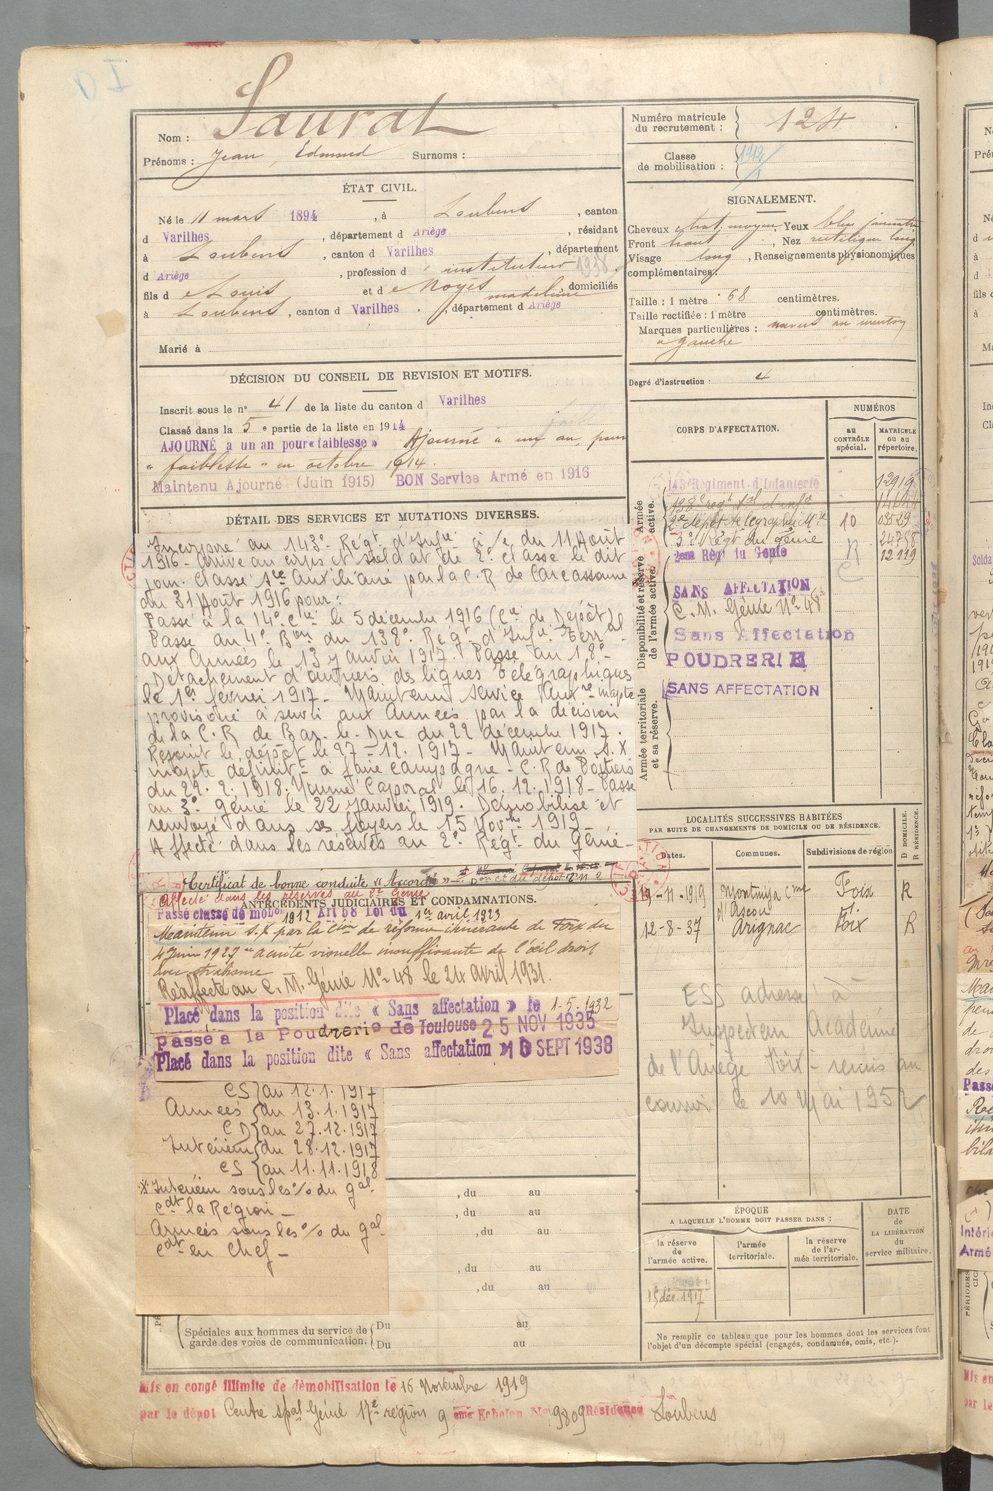 Nom : Saurat
Prénoms : Jean, Edmond Surnoms :
Numéro matricule du recrutement : 124
Classe de mobilisation : 1912
ÉTAT CIVIL.
Né le 11 mars 1894, à Loubens, canton
d Varilhes, département d Ariège, résidant
à Loubens, canton d Varilhes, département
d Ariège, profession d instituteur
1938
fils d e Louis et d e Noyès madeleine domiciliés
à Loubens, canton d Varilhes, département d Ariège
Marié à
SIGNALEMENT.
Cheveux chat. moyen Yeux bleu
Front haut, Nez rectiligne long
Visage long, Renseignements physionomiques
complémentaires:
Taille : 1 mètre 68 centimètres.
Taille rectifiée : 1 mètre centimètres.
Marques particulières : naevus au menton
à gauche
Degré d'instruction : 4
DÉCISION DU CONSEIL DE REVISION ET MOTIFS.
Inscrit sous le n° 41 de la liste du canton d Varilhes
Classé dans la 5e partie de la liste en 1914
AJOURNÉ a un an pour « faiblesse » Ajourné à un an, pour
« faiblesse » en octobre 1914.
Maintenu Ajourné (Juin 1915) BON Service Armé en 1916
CORPS D'AFFECTATION.
NUMÉROS
au CONTRÔLE spécial.
MATRICULE ou au répertoire.
Armée active.
Disponibilité et réserve de l'armée active.
Armée territoriale et sa réserve.
143e Régiment d'Infanterie 12919
138e regt tal d'infie
2e dépôt télégraphique 10
3e Régt du génie R 24758
2eme Régt du Génie 12119
C
SANS AFFECTATION
C. M. Génie No 48
Sans Affectation
POUDRERIE
SANS AFFECTATION
DÉTAIL DES SERVICES ET MUTATIONS DIVERSES.
Incorporé au 143e Régt d'Infie à/c du 11 Août
1916. Arrivé au corps et soldat de 2e classe le dit
jour. Classé sce Auxiliaire par la C. R de Carcassonne
du 31 Août 1916 pour :
Passé à la 14e Cie le 5 décembre 1916 (Cie de Dépôt)
Passé au 4e Bon du 138e Régt d'Infie Terral
aux Armées le 13 janvier 1917. Passé au 18e
Détachement d'ouvriers des lignes Télégraphiques
le 1er février 1917 - Maintenu service Auxre inapte
provisoire à servir aux Armées par la décision
de la C. R de Bar-le-Duc du 22 décembre 1917.
Rejoint le dépôt le 27-12.1917 - Maintenu S. X
inapte définitif à faire campagne - C. R de Poitiers
du 22.2.1918. Nommé Caporal le 16.12.1918 - Passé
au 3e génie le 22 janvier 1919. Démobilisé et
renvoyé dans ses foyers le 15 Novbre 1919
Affecté dans les réserves au 2e Régt du Génie -
Certificat de bonne conduite « Accordé »
Affecté dans les réserves au 2e Génie
ANTÉCÉDENTS JUDICIAIRES ET CONDAMNATIONS.
Passé classe de mobon 1912 Art 58 Loi du 1er avril 1923
Maintenu S. X par la Cion de réforme itinérante de Foix du
4 juin 1927 acuité visuelle insuffisante de l'œil droit
Réaffecté au C. M. Génie No 48 le 24 avril 1931
Placé dans la position dite « Sans affectation » le 1-5-1932
Passé à la Poudrerie de Toulouse 25 NOV 1935
Placé dans la position dite « Sans affectation » 10 SEPT 1938
CS au 12.1.1917
Armées du 13.1.1917
CD au 27.12.1917
Intérieur du 28.12.1917
CS au 11.11.1918
* Intérieur sous les % du gal
cdt la Région -
Armées sous les % du gal
cdt en chef -
, du au
, du au
, du au
, du au
, du au
Spéciales aux hommes du service de garde des voies de communication.
Du au
Du au
LOCALITÉS SUCCESSIVES HABITÉES
PAR SUITE DE CHANGEMENTS DE DOMICILE OU DE RÉSIDENCE.
Dates. Communes. Subdivisions de région
D DOMICILE.
R RÉSIDENCE.
19-11-1919 Foix R
12-8-37 Arignac Foix R
ESS adressé à
Inspecteur Académie
de l'Ariège Foix - remis au
courrier le 10 Mai 1952
ÉPOQUE
A LAQUELLE L'HOMME DOIT PASSER DANS :
la réserve de l'armée active.
l'armée territoriale.
la réserve de l'armée territoriale.
DATE de LA LIBÉRATION du service militaire.
15 déc. 1917
Ne remplir ce tableau que pour les hommes dont les services font
l'objet d'un décompte spécial (engagés, condamnés, omis, etc.).
Mis en congé illimité de démobilisation le 16 Novembre 1919
par le dépôt Centre spal Génie 17e région 9 eme Echelon No 9809 Résidence Loubens